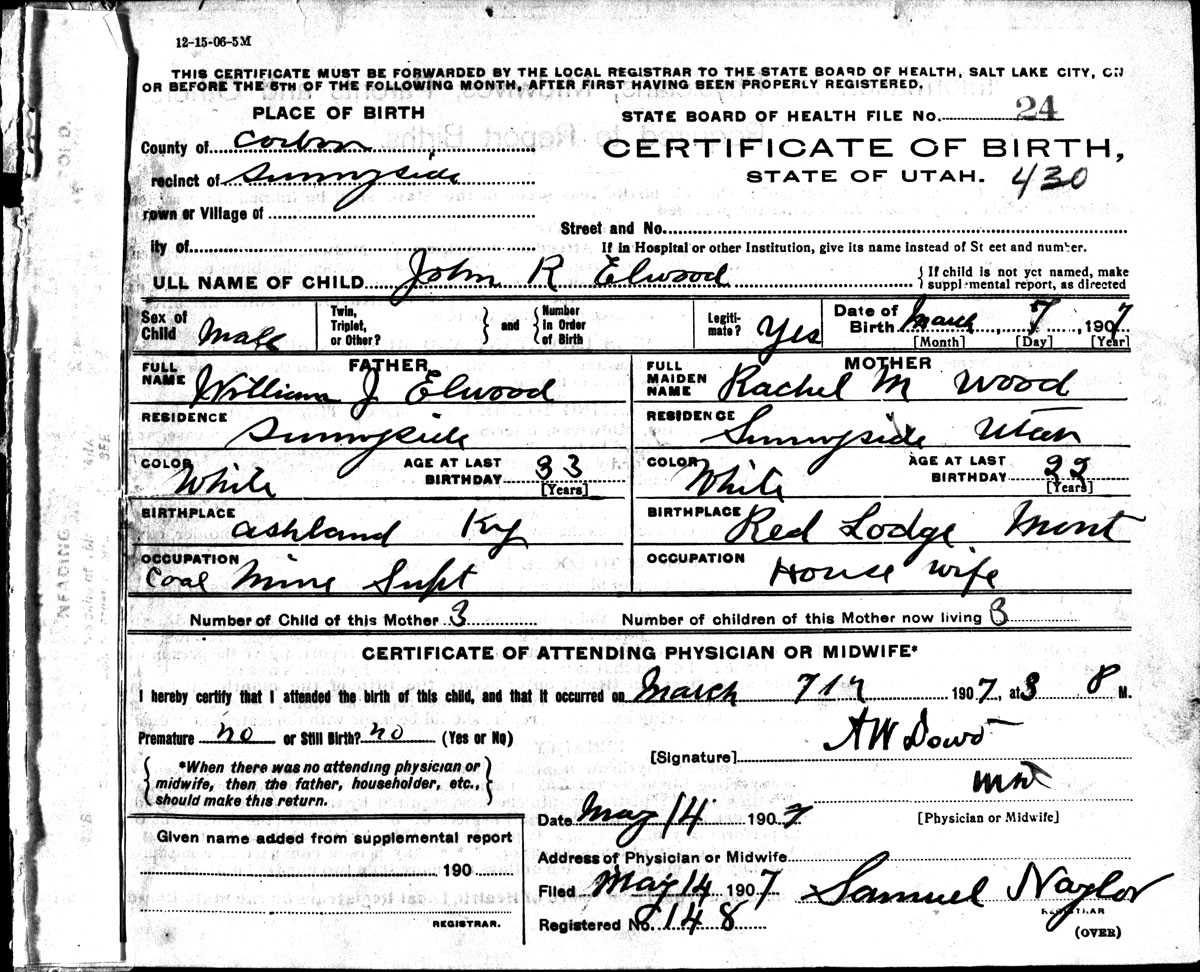 12-15-06-5M
THIS CERTIFICATE MUST BE FORWARDED BY THE LOCAL REGISTRAR TO THE STATE BOARD OF HEALTH, SALT LAKE CITY, ON
OR BEFORE THE 5TH OF THE FOLLOWING MONTH, AFTER FIRST HAVING BEEN PROPERLY REGISTERED.
PLACE OF BIRTH
STATE BOARD OF HEALTH FILE No. 24
County of Carbon
CERTIFICATE OF BIRTH,
recinct of Sunnyside
STATE OF UTAH. 430
rown or Village of
Street and No.
ity of
If in Hospital or other Institution, give its name instead of St eet and number.
ULL NAME OF CHILD John R Elwood
If child is not yet named, make
suppl mental report, as directed
Sex of Child Male
Twin, Triplet, or Other?
and
Number in Order of Birth
Legiti- mate? Yes
Date of Birth March, 7, 1907
[Month] [Day] [Year]
FATHER
FULL NAME William J Elwood
MOTHER
FULL MAIDEN NAME Rachel M Wood
RESIDENCE Sunnyside
RESIDENCE Sunnyside Utah
COLOR White
AGE AT LAST BIRTHDAY 33 [Years]
COLOR White
AGE AT LAST BIRTHDAY 22 [Years]
BIRTHPLACE Ashland Ky
BIRTHPLACE Red Lodge Mont
OCCUPATION Coal Mine Supt
OCCUPATION House wife
Number of Child of this Mother 3
Number of children of this Mother now living 3
CERTIFICATE OF ATTENDING PHYSICIAN OR MIDWIFE*
I hereby certify that I attended the birth of this child, and that it occurred on March 7th 1907, at 3 M.
Premature no or Still Birth? no (Yes or No)
[Signature] A W Dowd
*When there was no attending physician or
midwife, then the father, householder, etc.,
should make this return.
[Physician or Midwife]
Date May 14 1907
Given name added from supplemental report
190
Address of Physician or Midwife
Filed May 14 1907 Samuel Naylor
REGISTRAR.
REGISTRAR
Registered No. 148
(OVER)